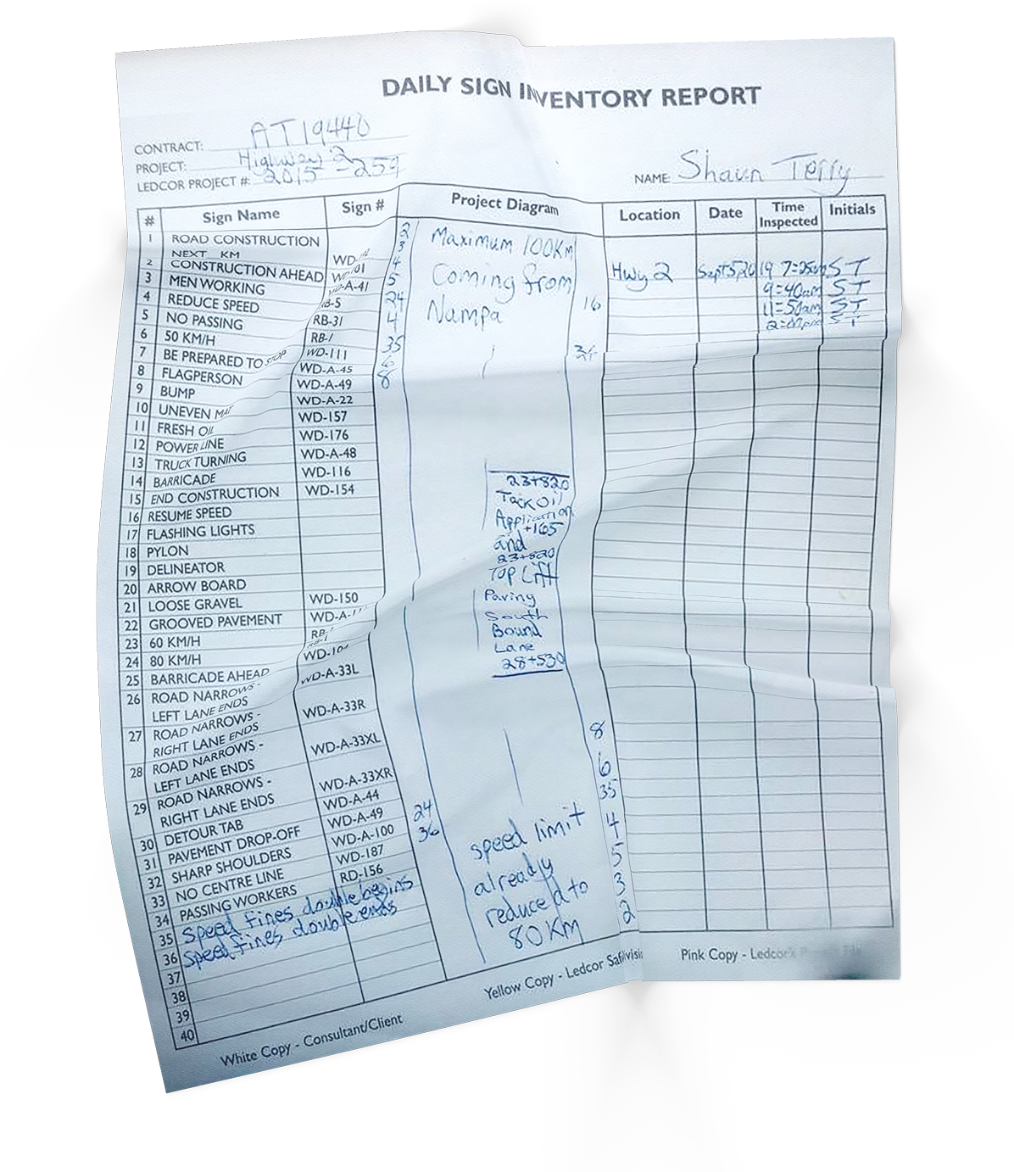 DAILY SIGN INVENTORY REPORT
CONTRACT: AT19440
PROJECT: Highway 2
LEDCOR PROJECT #: 2015-259
NAME: Shaun Terry
# Sign Name Sign # Project Diagram Location Date Time Inspected Initials
1 ROAD CONSTRUCTION
NEXT KM WD-
2 CONSTRUCTION AHEAD
3 MEN WORKING -A-41
4 REDUCE SPEED -5
5 NO PASSING RB-31
6 50 KM/H RB-1
7 BE PREPARED TO STOP WD-111
8 FLAGPERSON WD-A-45
9 BUMP WD-A-49
10 UNEVEN WD-A-22
11 FRESH OIL WD-157
12 POWER LINE WD-176
13 TRUCK TURNING WD-A-48
14 BARRICADE WD-116
15 END CONSTRUCTION WD-154
16 RESUME SPEED
17 FLASHING LIGHTS
18 PYLON
19 DELINEATOR
20 ARROW BOARD
21 LOOSE GRAVEL WD-150
22 GROOVED PAVEMENT WD-A-
23 60 KM/H RB-
24 80 KM/H
25 BARRICADE AHEAD WD-10
26 ROAD NARROWS - WD-A-33L
LEFT LANE ENDS
27 ROAD NARROWS - WD-A-33R
RIGHT LANE ENDS
28 ROAD NARROWS - WD-A-33XL
LEFT LANE ENDS
29 ROAD NARROWS - WD-A-33XR
RIGHT LANE ENDS
30 DETOUR TAB WD-A-44
31 PAVEMENT DROP-OFF WD-A-49
32 SHARP SHOULDERS WD-A-100
33 NO CENTRE LINE WD-187
34 PASSING WORKERS RD-156
35 Speed fines double begins
36 Speed fines double ends
37
38
39
40
2
3
4
5
24
4
35
6
8
Maximum 100Km
Coming from
Nampa
16
36
23+820
Tack Oil
Application
+165
and
23+820
Top Lift
Paving
South
Bound
Lane
28+530
24
36
speed limit
already
reduced to
80 Km
8
6
35
4
5
3
2
Hwy 2 Sept 5 2019 7:25am ST
9:40am ST
11:50am ST
ST
White Copy - Consultant/Client
Yellow Copy - Ledcor
Pink Copy - Ledcor's